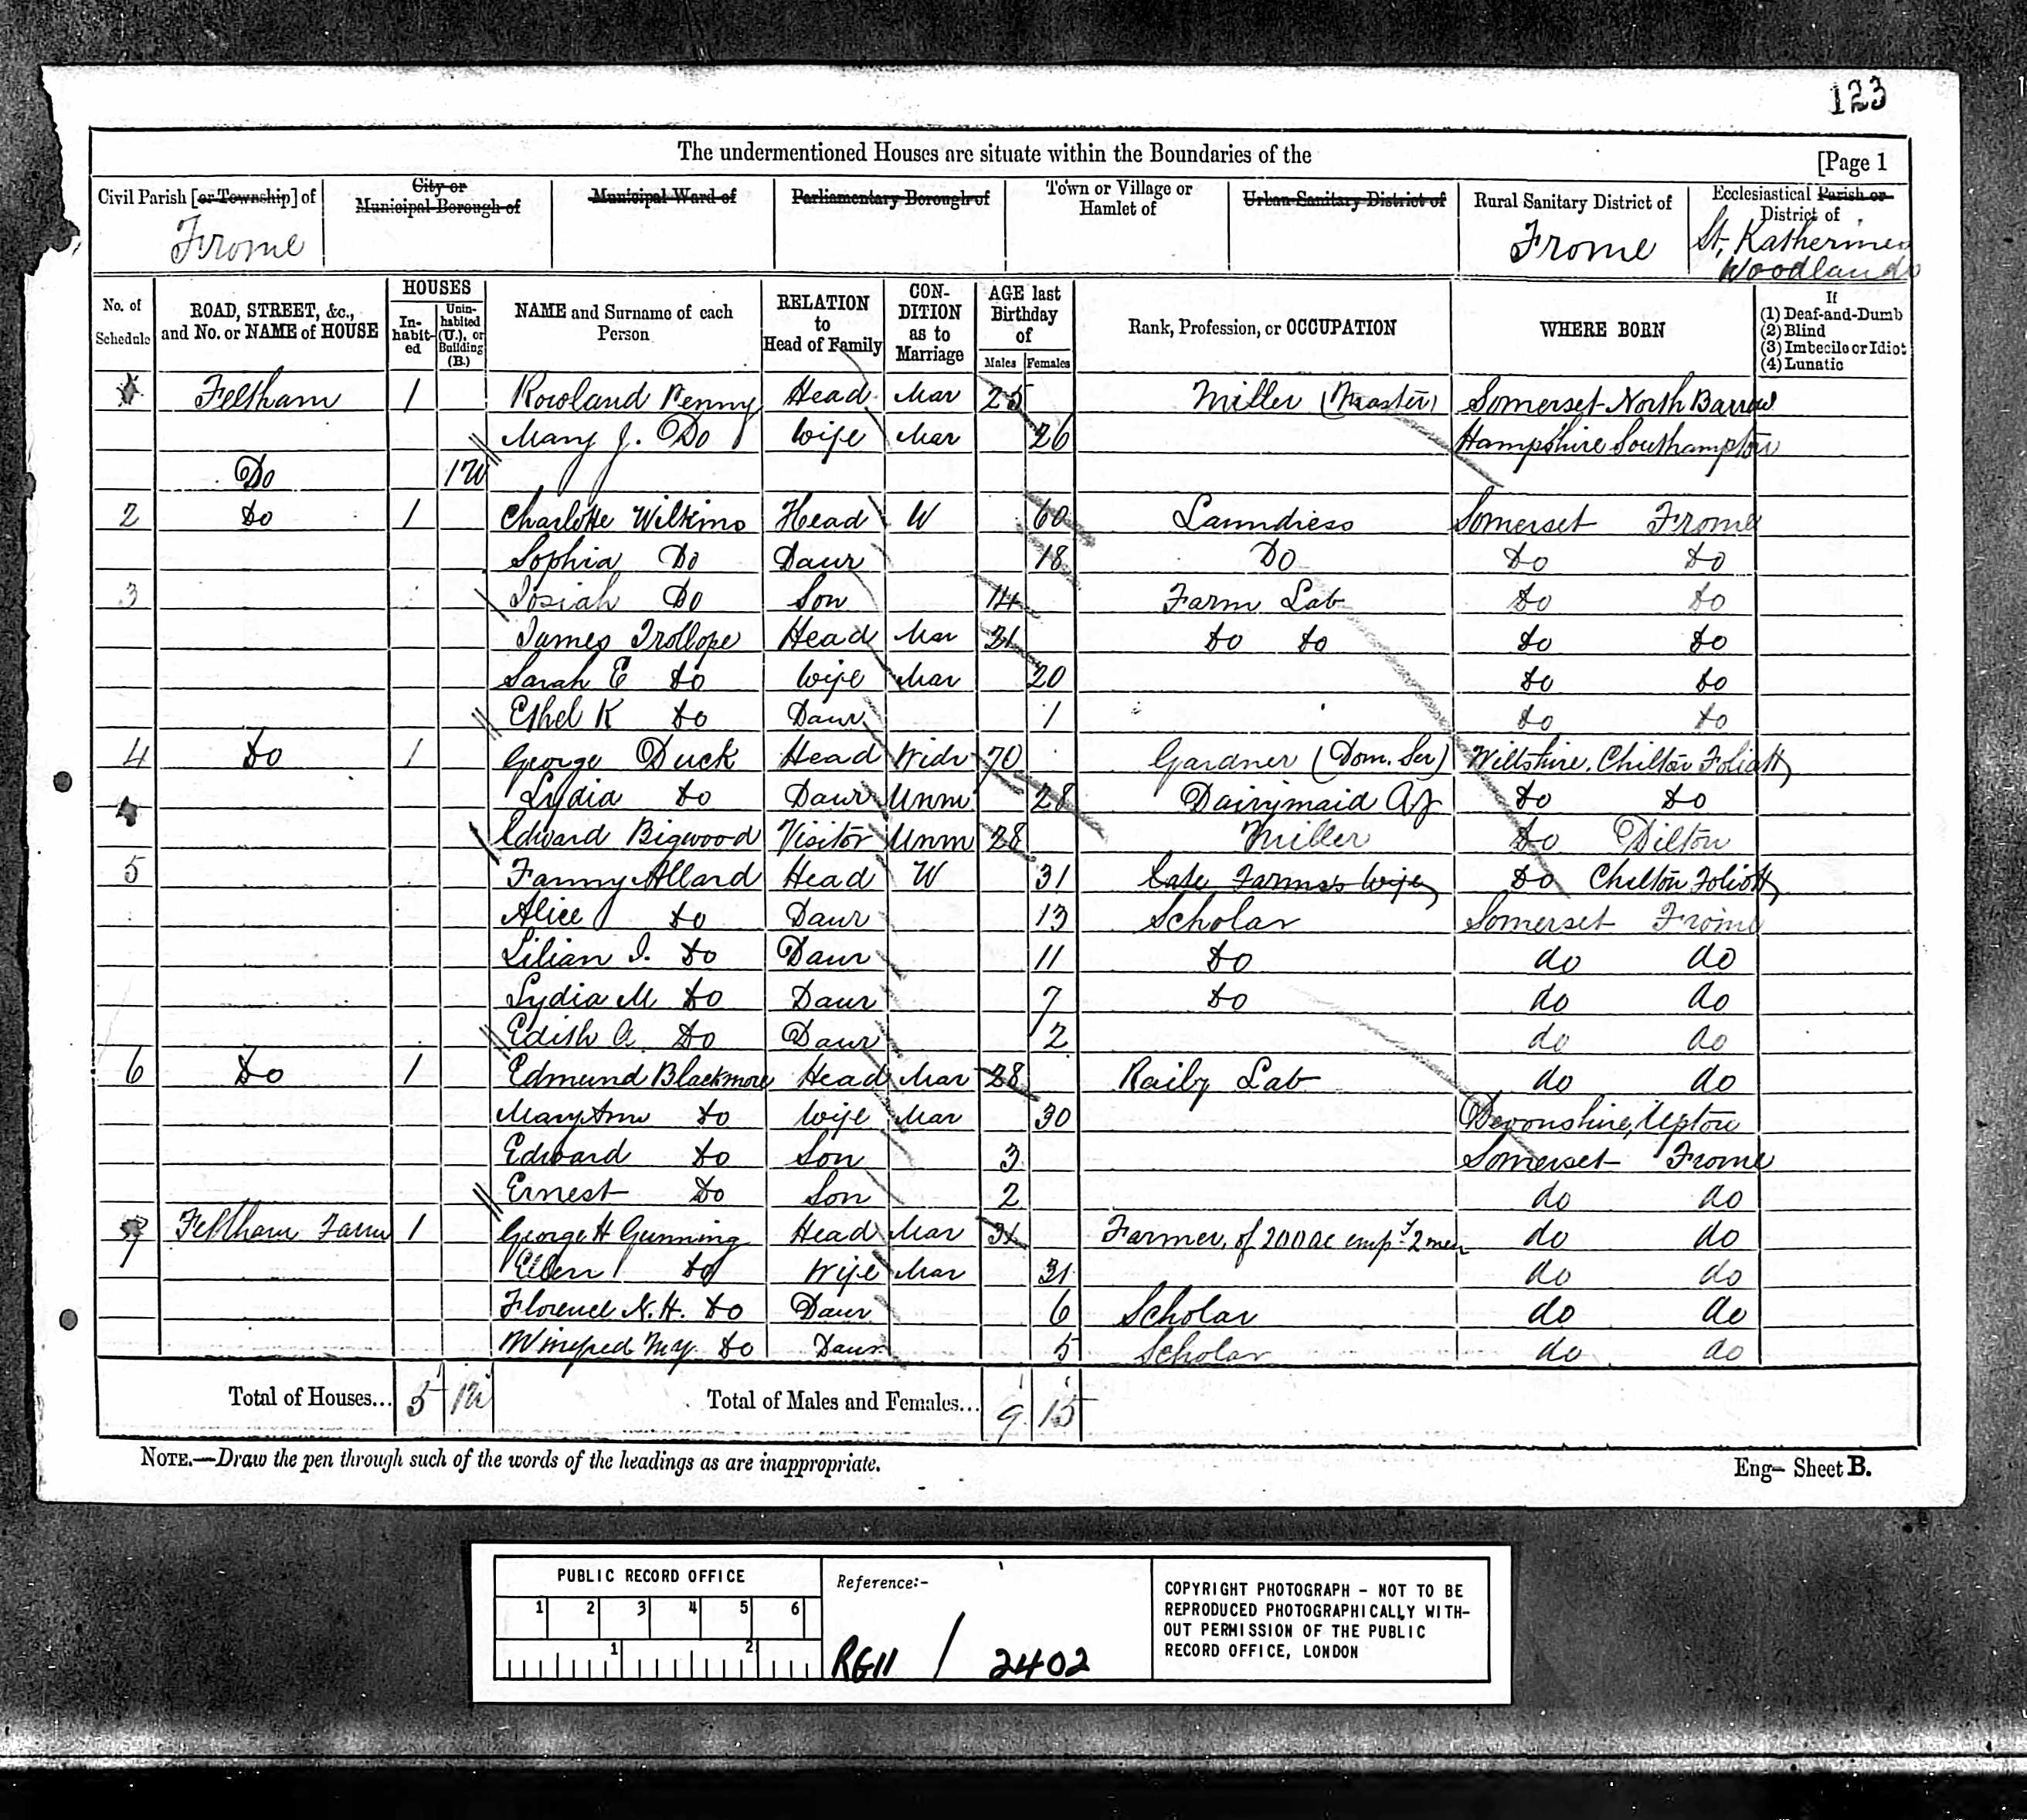 123
The undermentioned Houses are situate within the Boundaries of the
[Page 1
Civil Parish [or Township] of
Frome
City or
Municipal Borough of
Municipal Ward of
Parliamentary Borough of
Town or Village or
Hamlet of
Urban Sanitary District of
Rural Sanitary District of
Frome
Ecclesiastical Parish or
District of
St. Katherines
Woodlands
No. of
Schedule
ROAD, STREET, &c.,
and No. or NAME of HOUSE
HOUSES
In-
habit-
ed
Unin-
habited
(U.), or
Building
(B.)
NAME and Surname of each
Person
RELATION
to
Head of Family
CON-
DITION
as to
Marriage
AGE last
Birthday
of
Males Females
Rank, Profession, or OCCUPATION
WHERE BORN
If
(1) Deaf-and-Dumb
(2) Blind
(3) Imbecile or Idiot
(4) Lunatic
1 Feltham 1 Rowland Penny Head Mar 25 Miller (Master) Somerset North Barrow
Mary J. Do Wife Mar 26 Hampshire Southampton
Do 1 W
2 Do 1 Charlotte Wilkins Head W 60 Laundress Somerset Frome
Sophia Do Daur 18 Do Do Do
3 Josiah Do Son 14 Farm Lab Do Do
James Trollope Head Mar 21 Do Do Do Do
Sarah E Do Wife Mar 20 Do Do
Ethel K Do Daur 1 Do Do
4 Do 1 George Duck Head Widr 70 Gardner (Dom. Ser) Wiltshire, Chilton Foliatt
Lydia Do Daur Unm 28 Dairymaid Do Do
Edward Bigwood Visitor Unm 28 Miller Do Dilton
5 Fanny Allard Head W 31 Late Farmers Wife Do Chilton Foliott
Alice Do Daur 13 Scholar Somerset Frome
Lilian I. Do Daur 11 Do do do
Lydia M Do Daur 7 Do do do
Edith A. Do Daur 2 do do
6 Do 1 Edmund Blackmore Head Mar 28 Raily Lab do do
Mary Ann Do Wife Mar 30 Devonshire, Upton
Edward Do Son 3 Somerset Frome
Ernest Do Son 2 do do
7 Feltham Farm 1 George H Gunning Head Mar 31 Farmer, of 200 ac emp.g 2 men do do
Ellen Do Wife Mar 31 do do
Florence N. H. Do Daur 6 Scholar do do
Winefred My Do Daur 5 Scholar do do
Total of Houses... 5 1 W
Total of Males and Females... 9 15
NOTE.—Draw the pen through such of the words of the headings as are inappropriate.
Eng— Sheet B.
PUBLIC RECORD OFFICE
1 2 3 4 5 6
1 2
Reference:-
RG11 / 2402
COPYRIGHT PHOTOGRAPH - NOT TO BE
REPRODUCED PHOTOGRAPHICALLY WITH-
OUT PERMISSION OF THE PUBLIC
RECORD OFFICE, LONDON